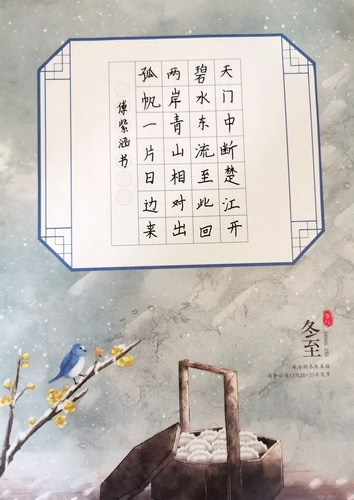 天门中断楚江开
碧水东流至此回
两岸青山相对出
孤帆一片日边来
傅紫涵书
节气
冬至